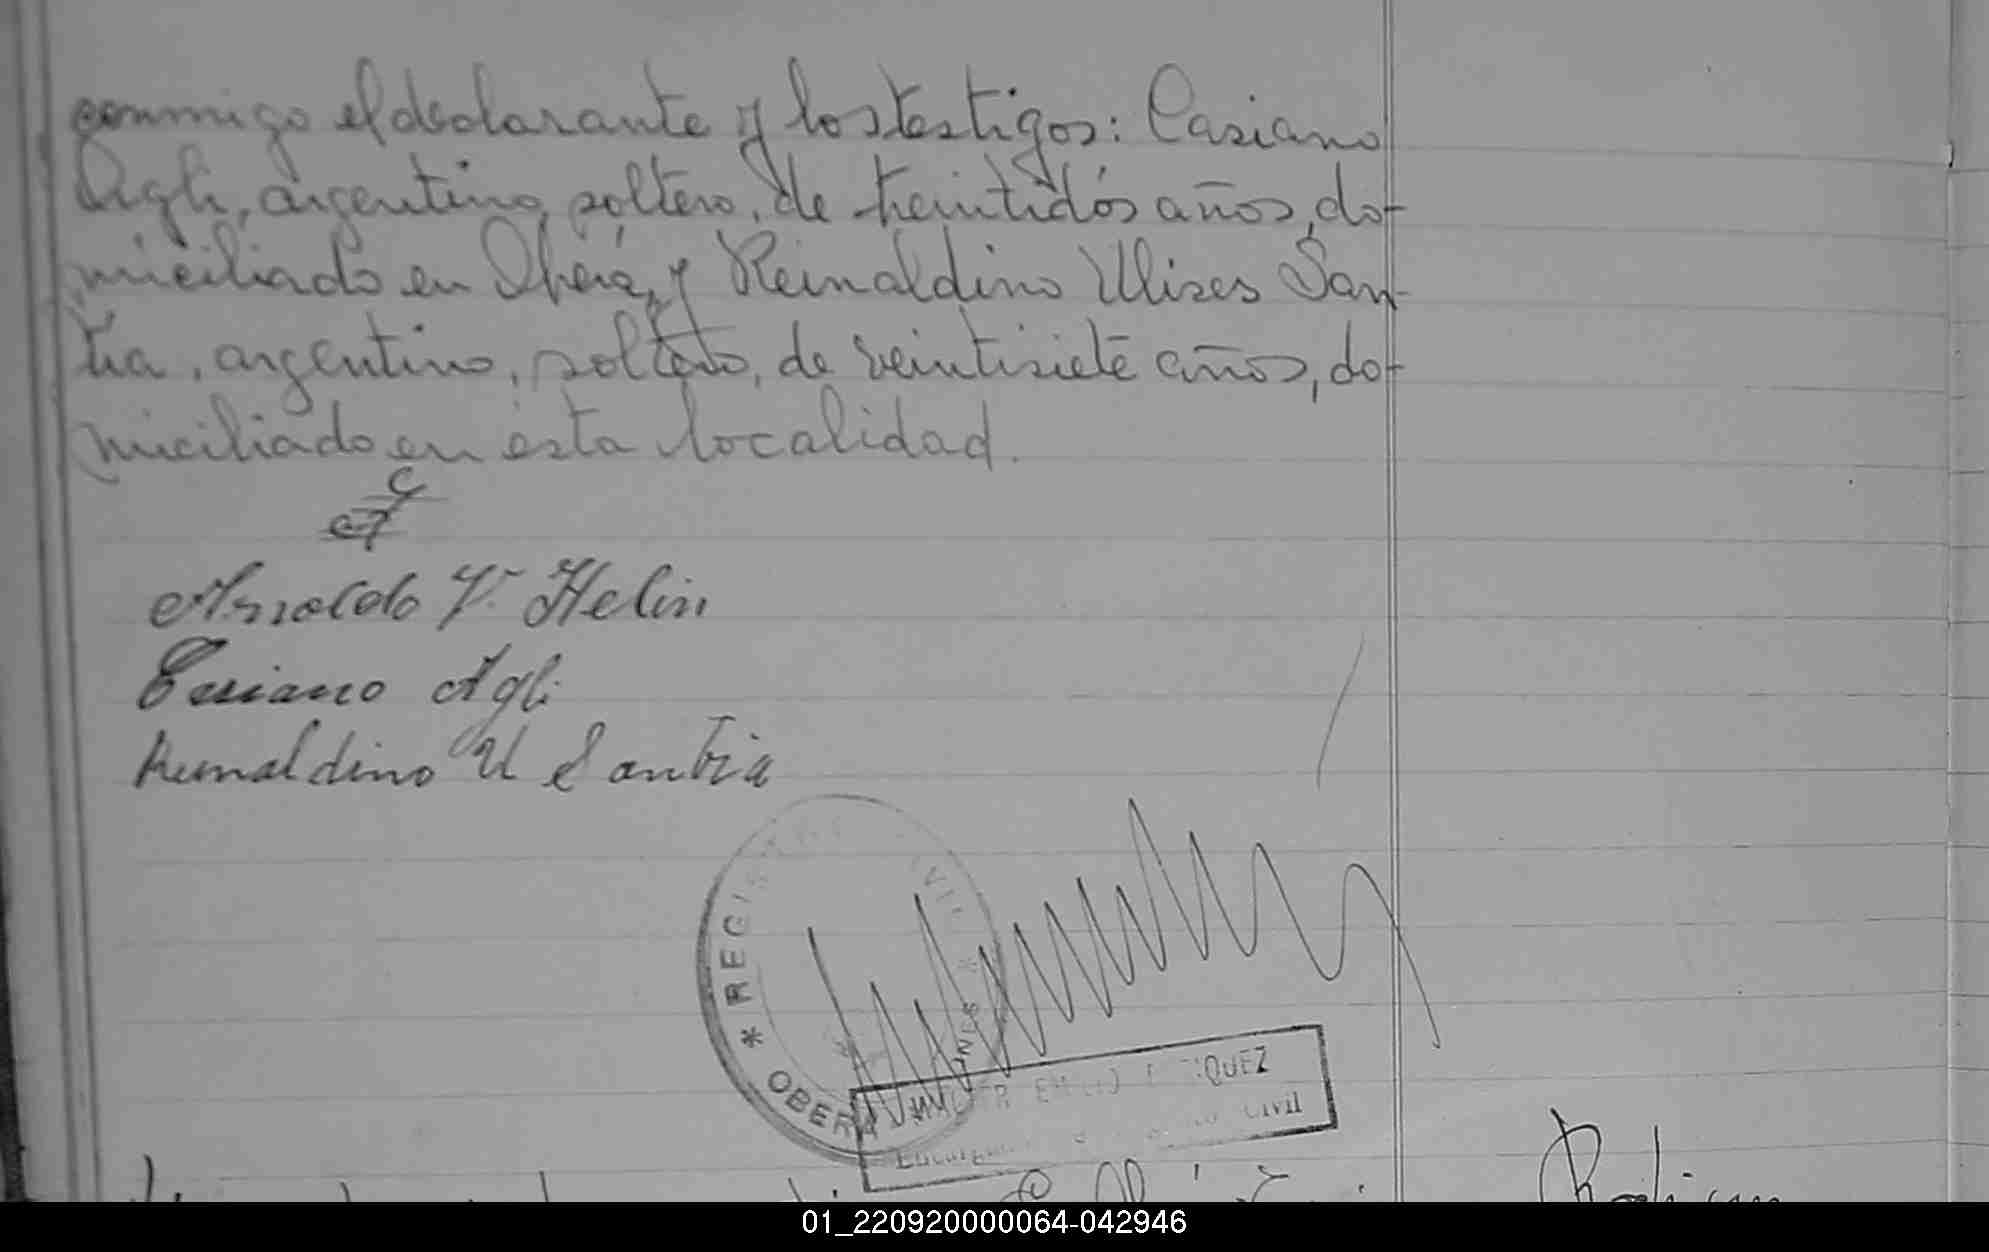 conmigo el declarante y los testigos: Casiano
Agli, argentino, soltero, de treintidós años, do-
miciliado en Oberá, y Reinaldino Ulises San-
tia, argentino, soltero, de veintisiete años, do-
miciliado en ésta localidad.
Arnoldo V. Helin
Casiano Agli
Reinaldino U Santia
* REGISTRO CIVIL *
OBERA
Civil
01_220920000064-042946